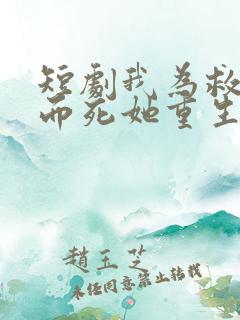 短劇我為救
而死她重生
趙玉芝
未經同意禁止轉載